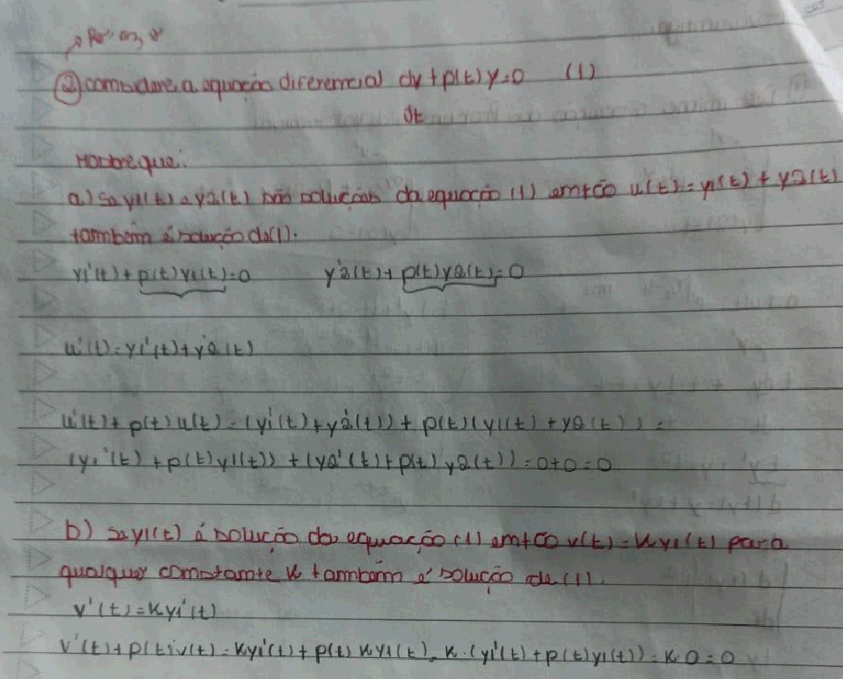 ② considere a equação diferencial dy + p(t) y = 0 (1)
dt
Mostre que:
a) se y1(t) e y2(t) são soluções da equação (1) então u(t) = y1(t) + y2(t)
também é solução de (1).
y1'(t) + p(t) y1(t) = 0 y2'(t) + p(t) y2(t) = 0
u'(t) = y1'(t) + y2'(t)
u'(t) + p(t) u(t) = (y1'(t) + y2'(t)) + p(t) (y1(t) + y2(t)) =
(y1'(t) + p(t) y1(t)) + (y2'(t) + p(t) y2(t)) = 0 + 0 = 0
b) se y1(t) é solução da equação (1) então v(t) = k y1(t) para
qualquer constante k também é solução de (1).
v'(t) = k y1'(t)
v'(t) + p(t) v(t) = k y1'(t) + p(t) k y1(t) = k · (y1'(t) + p(t) y1(t)) = k · 0 = 0